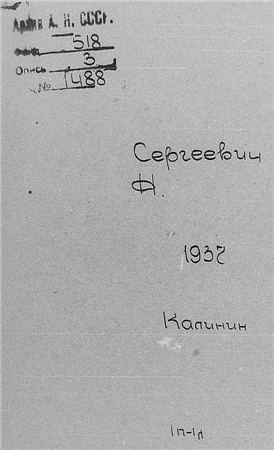 Архив А. Н. СССР.
фонд 518
Опись 3
№ 1488
Сергеевич
Н.
1937
Калинин
1п-1л